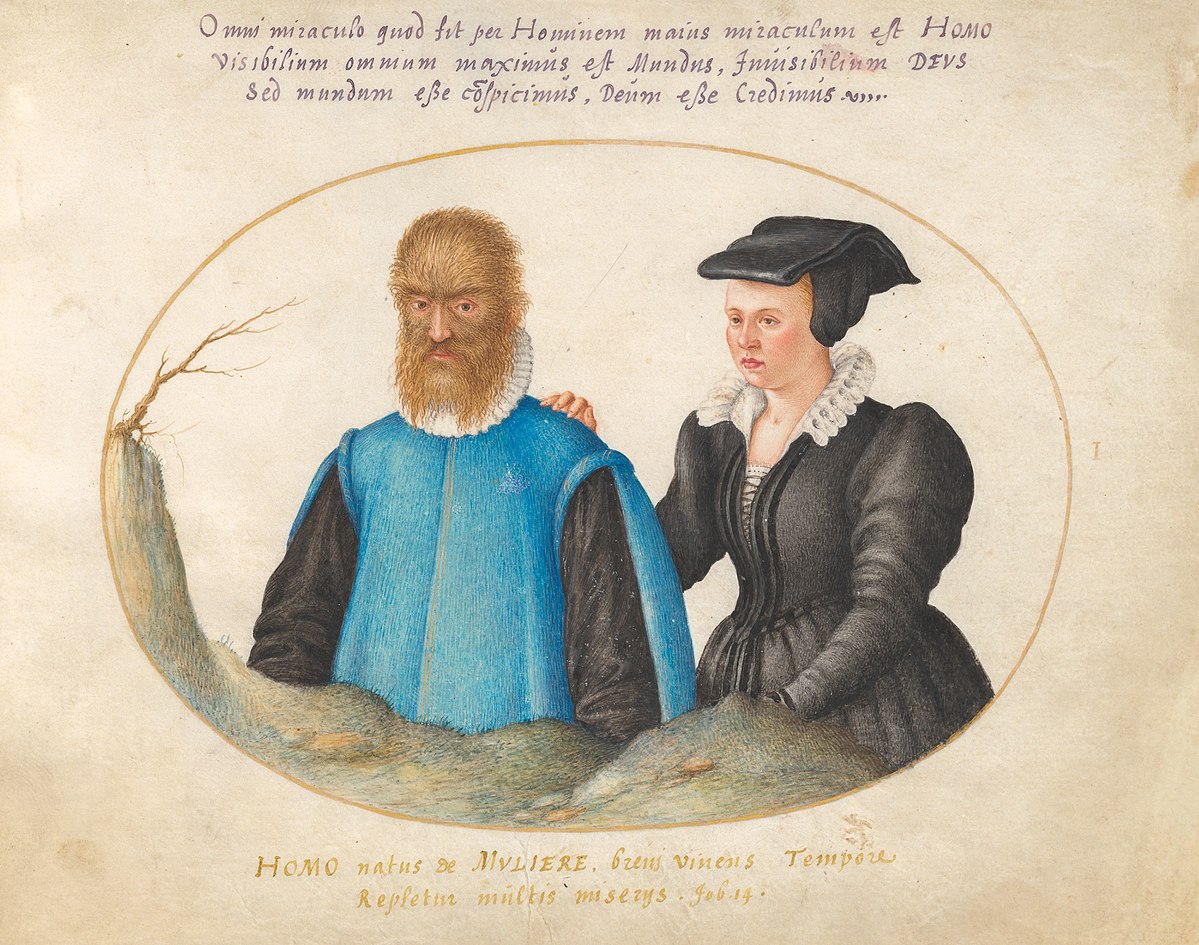 Omni miraculo quod fit per Hominem maius miraculum est HOMO
Visibilium omnium maximus est Mundus, Invisibilium DEVS
Sed mundum eße cōspicimus, Deum eße Credimus
I
HOMO natus de MVLIERE, brevi vivens Tempore
Repletur multis miserijs. Job. 14.